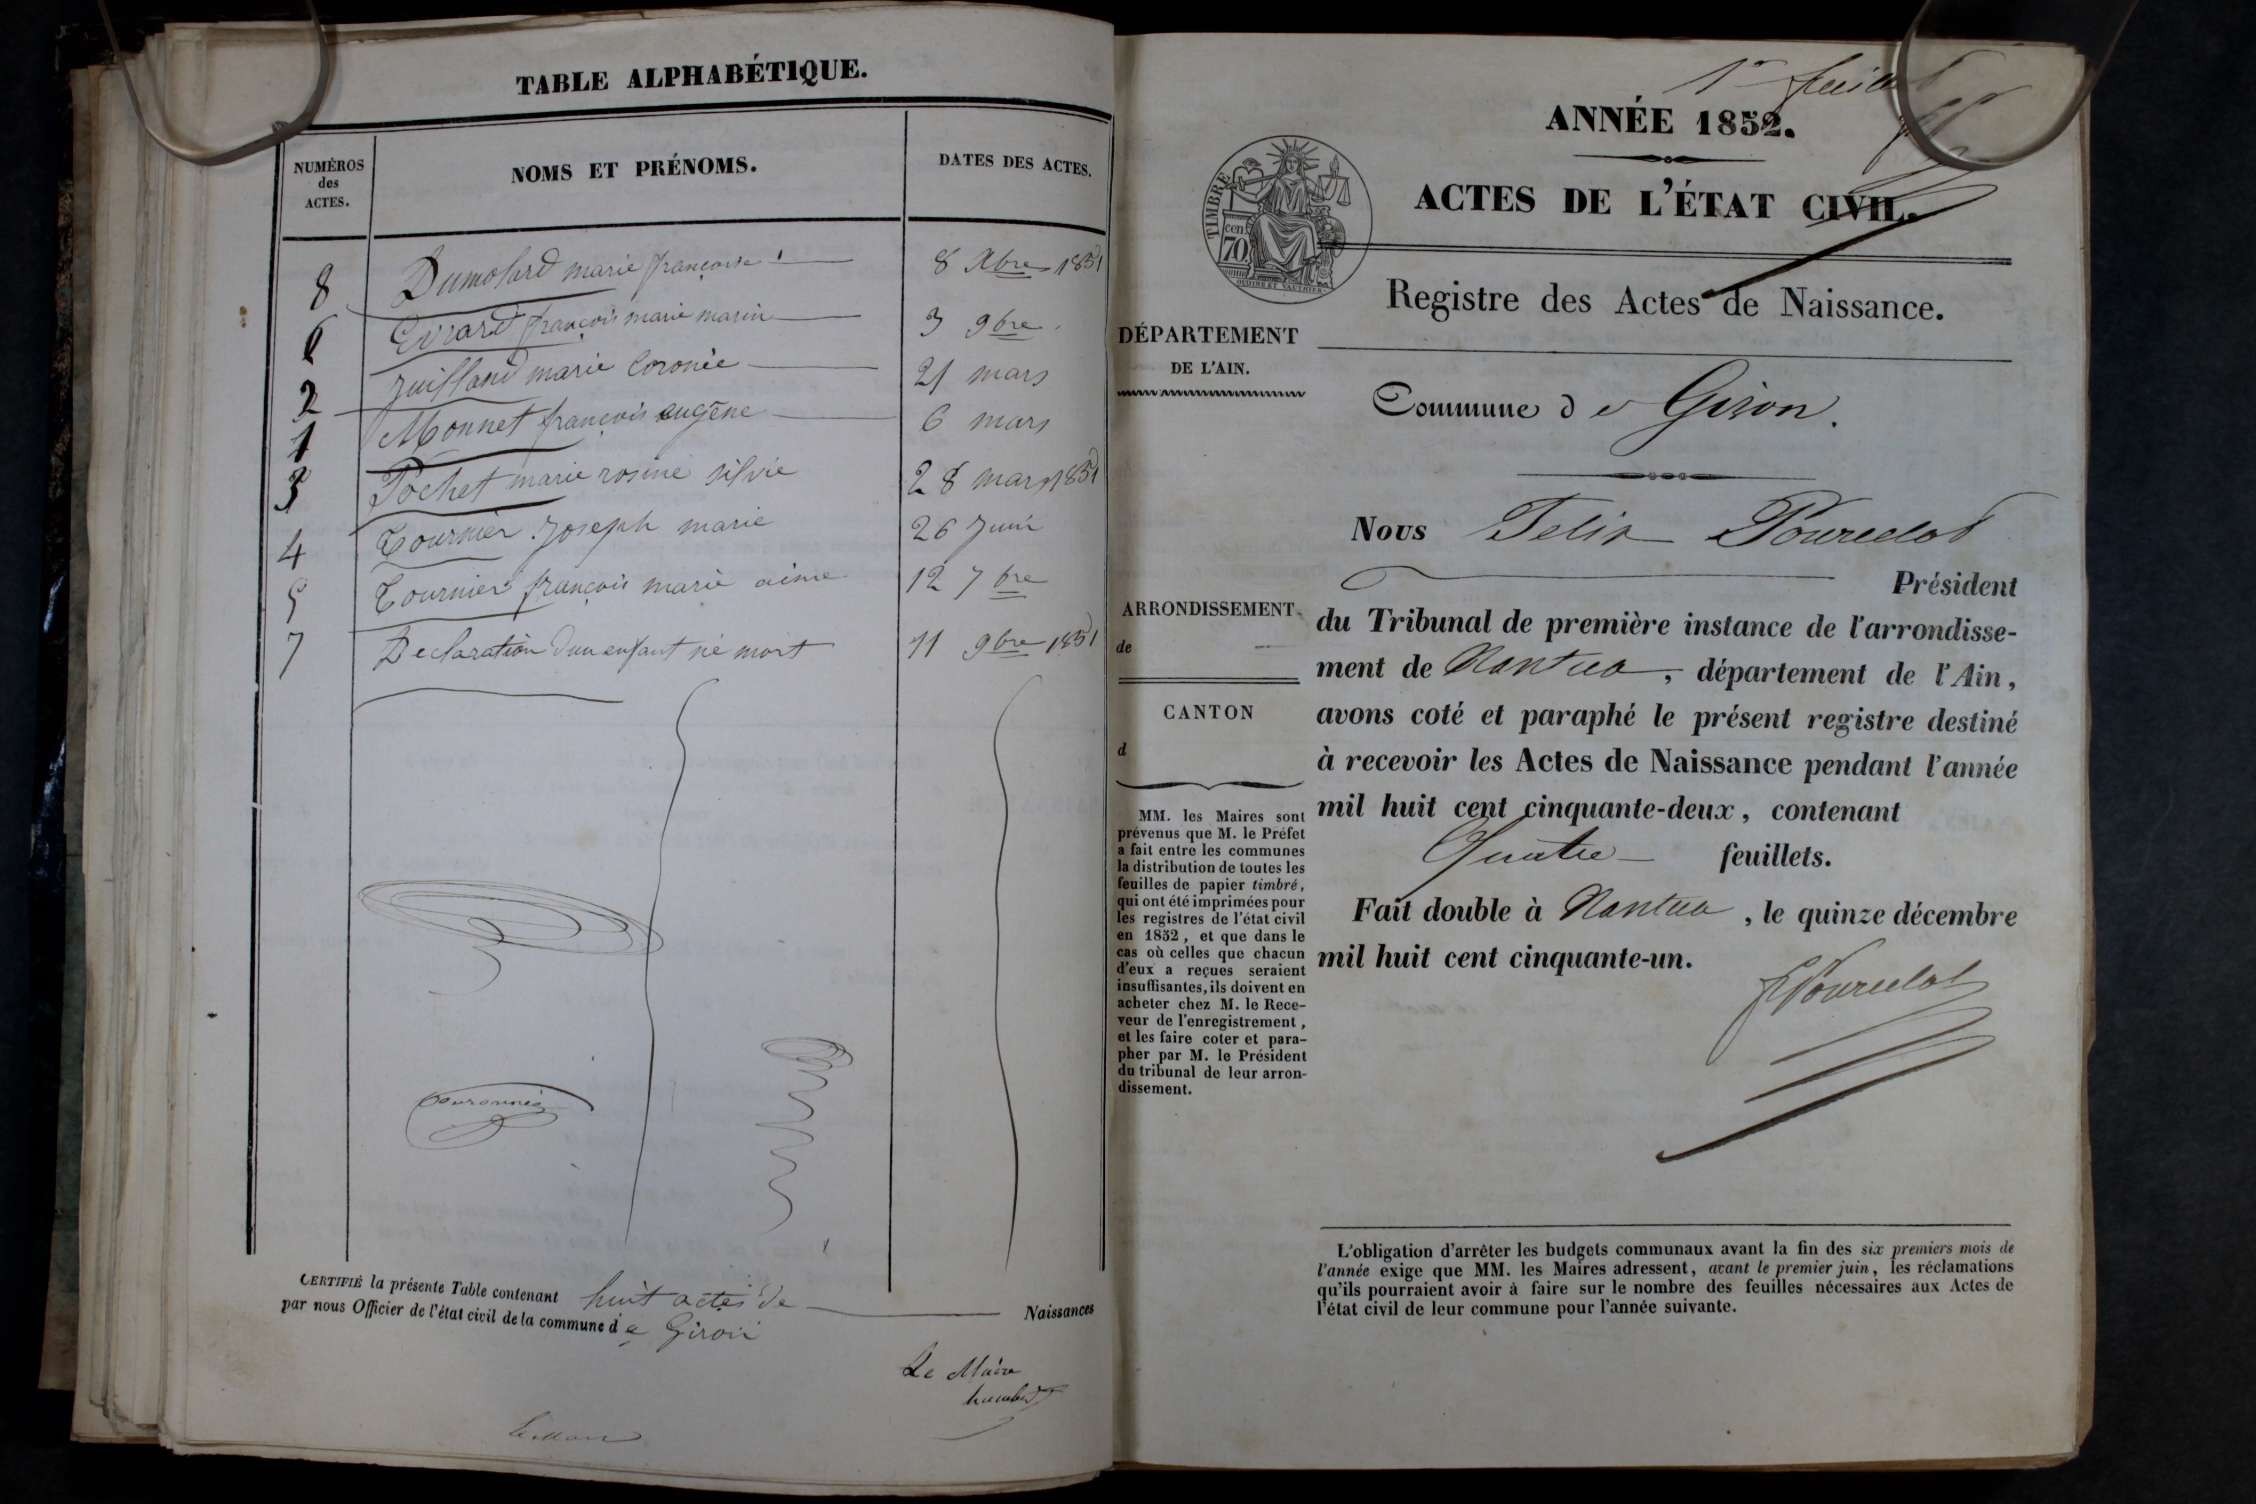 TABLE ALPHABÉTIQUE.
NUMÉROS des ACTES. NOMS ET PRÉNOMS. DATES DES ACTES.
8 Dumolard marie françoise 8 Xbre 1851
6 Evrard françois marie marin 3 9bre
2 Juilland marie Coronée 21 mars
1 Monnet françois eugène 6 mars
3 Pochet marie rosine silvie 28 mars 1851
4 Tournier Joseph marie 26 Juin
5 Tournier françois marie aime 12 7bre
7 Declaration d'un enfant né mort 11 9bre 1851
CERTIFIÉ la présente Table contenant huit actes de Naissances
par nous Officier de l'état civil de la commune de Giron
Le Maire
1er feuillet
ANNÉE 1852.
ACTES DE L'ÉTAT CIVIL.
TIMBRE
70 cen
OUDINE ET VAUTHIER
Registre des Actes de Naissance.
DÉPARTEMENT
DE L'AIN.
Commune de Giron.
Nous Felix Pourcelot
Président
ARRONDISSEMENT
de
CANTON
d
du Tribunal de première instance de l'arrondisse-
ment de Nantua, département de l'Ain,
avons coté et paraphé le présent registre destiné
à recevoir les Actes de Naissance pendant l'année
mil huit cent cinquante-deux, contenant
Quatre feuillets.
Fait double à Nantua, le quinze décembre
mil huit cent cinquante-un.
FPourcelot
MM. les Maires sont
prévenus que M. le Préfet
a fait entre les communes
la distribution de toutes les
feuilles de papier timbré,
qui ont été imprimées pour
les registres de l'état civil
en 1852, et que dans le
cas où celles que chacun
d'eux a reçues seraient
insuffisantes, ils doivent en
acheter chez M. le Rece-
veur de l'enregistrement,
et les faire coter et para-
pher par M. le Président
du tribunal de leur arron-
dissement.
L'obligation d'arrêter les budgets communaux avant la fin des six premiers mois de
l'année exige que MM. les Maires adressent, avant le premier juin, les réclamations
qu'ils pourraient avoir à faire sur le nombre des feuilles nécessaires aux Actes de
l'état civil de leur commune pour l'année suivante.